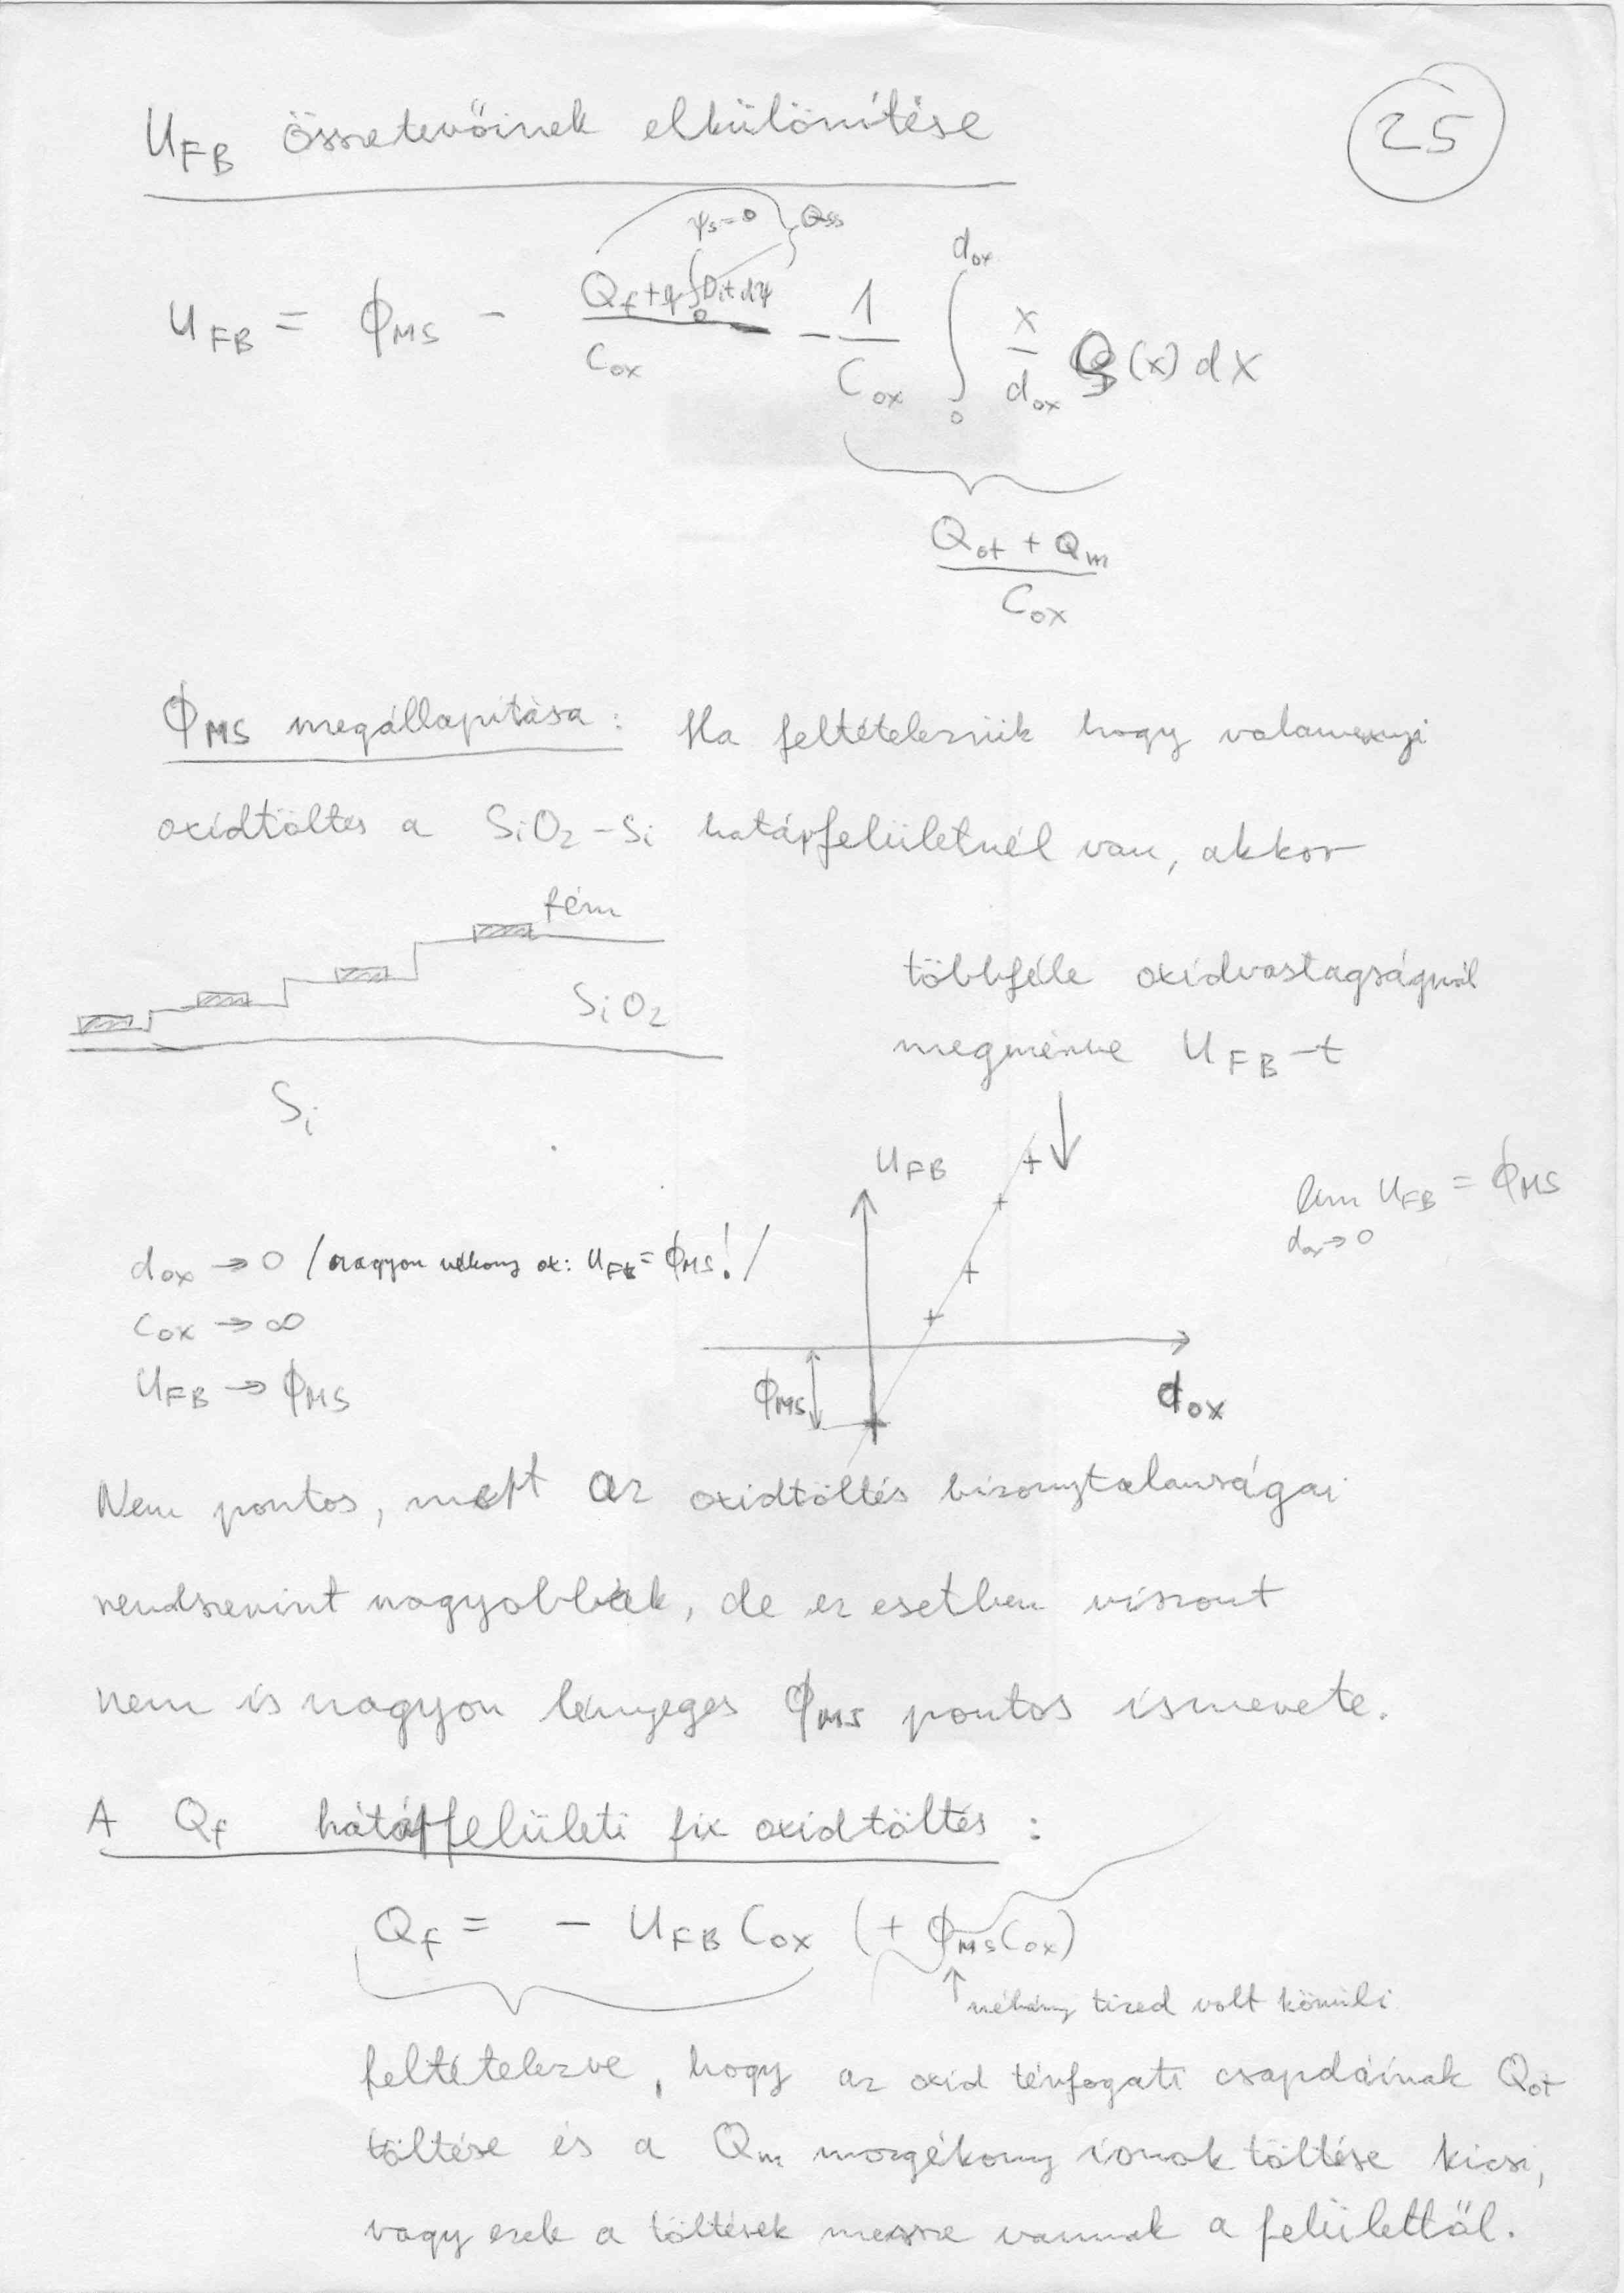 25
U_FB összetevőinek elkülönítése
ψs=0 } Qss
U_FB = ϕ_MS - (Q_f + q∫_0 D_it dψ)/C_ox - 1/C_ox ∫_0^d_ox x/d_ox ρ(x) dx
(Q_ot + Q_m)/C_ox
Φ_MS megállapítása: Ha feltételezzük hogy valamennyi
oxidtöltés a SiO2-Si határfelületnél van, akkor
fém
SiO2
Si
többféle oxidvastagságnál
megmérve U_FB-t
U_FB
lim U_FB = ϕ_MS
d_ox→0
d_ox → 0 /nagyon vékony ox: U_FB = ϕ_MS!/
C_ox → ∞
U_FB → ϕ_MS
ϕ_MS
d_ox
Nem pontos, mert az oxidtöltés bizonytalanságai
rendszerint nagyobbak, de ez esetben viszont
nem is nagyon lényeges ϕ_MS pontos ismerete.
A Q_f határfelületi fix oxidtöltés:
Q_f = - U_FB C_ox (+ ϕ_MS C_ox)
↑ néhány tized volt körüli
feltételezve, hogy az oxid térfogati csapdáinak Q_ot
töltése és a Q_m mozgékony ionok töltése kicsi,
vagy ezek a töltések messze vannak a felülettől.